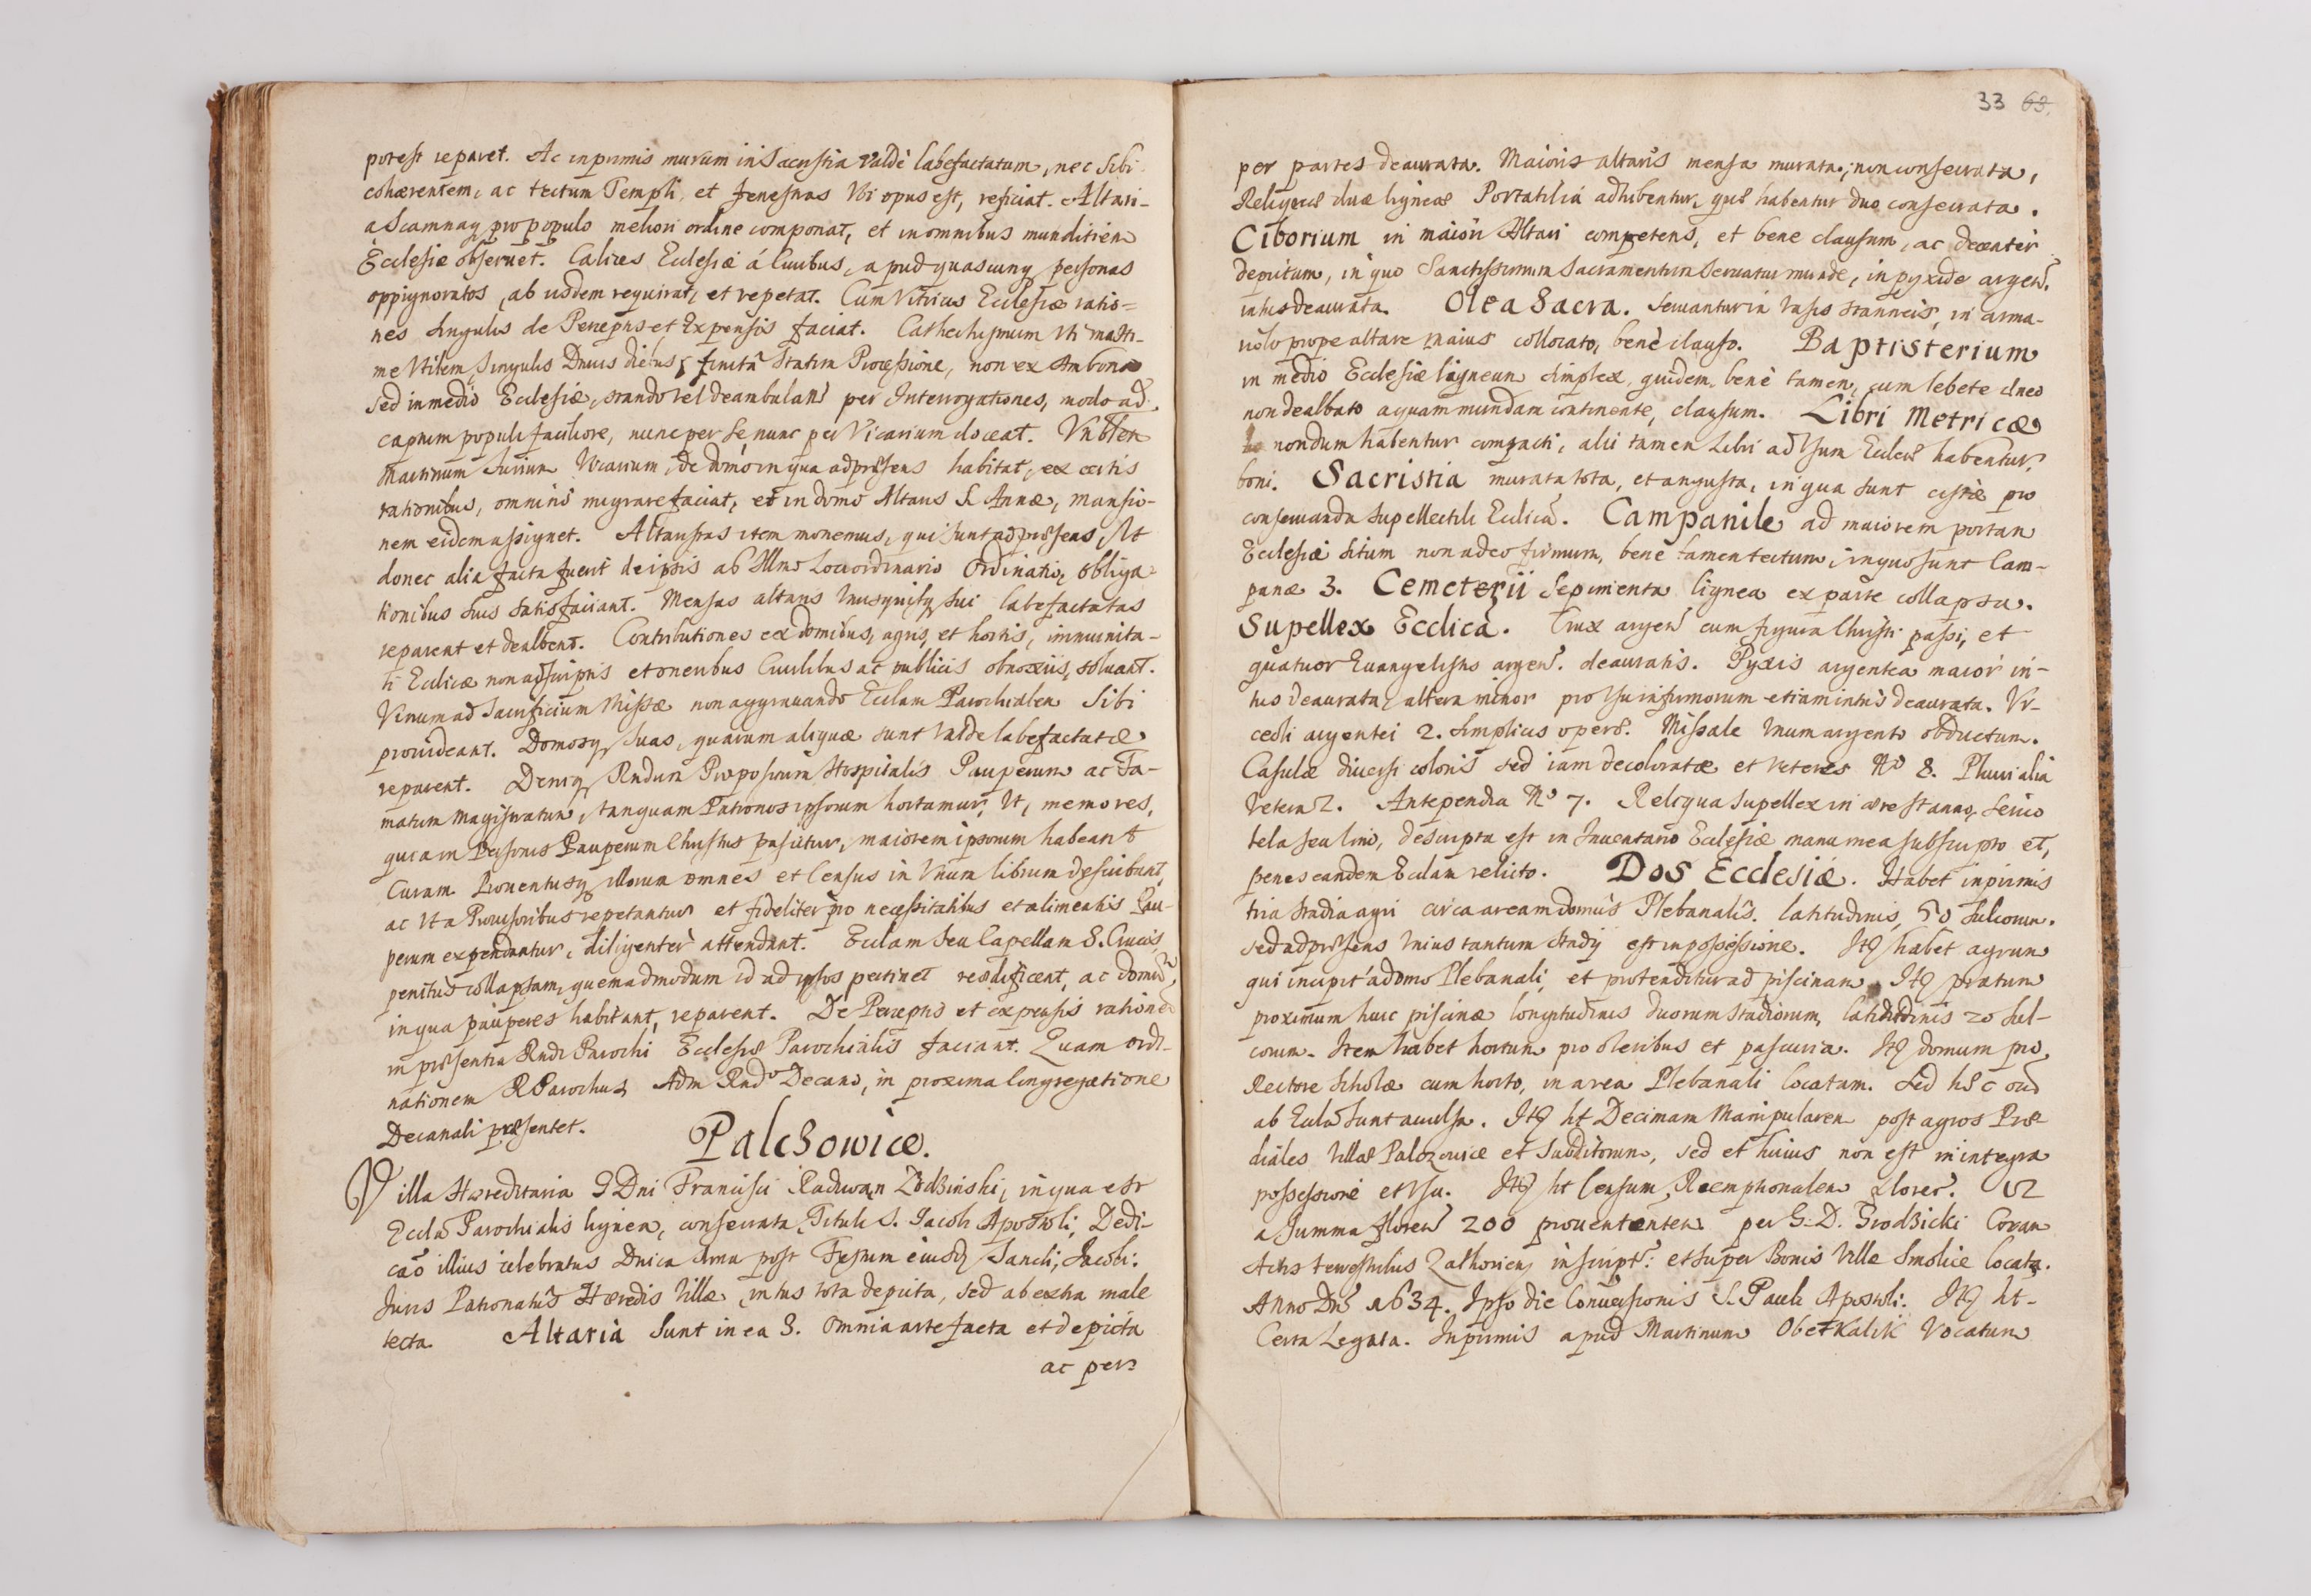 potest reparet. Ac inprimis murum in Sacristia valdè labefactatum, nec sibi
cohærentem, ac tectum Templi, et fenestras vbi opus est, reficiat. Altari-
a Scamnaq pro populo meliori ordine componat, et in omnibus munditiem
Ecclesiæ obseruet. Calices Ecclesiæ á Ciuibus, apud quascunq personas
oppignoratos, ab iisdem requirat, et repetat. Cum Vitricis Ecclesiæ ratio-
nes singulis de Perceptis et Expensis faciat. Cathechismum vti maxi-
me vtilem singulis Dnicis diebus, finitâ statim Processione, non ex Ambona
sed in medio Ecclesiæ, stando vel deambulans per Interrogationes, modo ad
captum populi faciliore, nunc per se, nunc per Vicarium doceat.
Martinum Vicarium, de domo in qua ad præsens habitat, ex certis
rationibus, omninò migrare faciat, et in domo Altaris S. Annæ, mansio-
nem eidem assignet. Altaristas item monemus, qui sunt ad præsens, vt
donec alia facta fuerit de ipsis ab Illmo Loci ordinario Ordinatio, obliga-
tionibus suis satisfaciant. Mensas altaris vnusquisq sui labefactatas
reparent et dealbent. Contributiones ex domibus, agris, et hortis, immunita-
ti Ecclicæ non adscriptis et oneribus Ciuilibus ac publicis obnoxiis, soluant.
Vinum ad Sacrificium Missæ non aggrauando Ecclam Parochialem sibi
prouideant. Domosq suas, quarum aliquæ sunt valde labefactatæ
reparent. Deniq Rndum Præpositum Hospitalis Pauperum ac Fa-
matum Magistratum, tanquam Patronos ipsorum hortamur, vt, memores,
quia in Personis Pauperum Christus pascitur, maiorem ipsorum habeant
Curam. Prouentusq illorum omnes et Census in vnum librum describant,
ac vt a Prouisoribus repetantur et fideliter pro necessitatibus et alimentis Pau-
perum expendantur, diligenter attendant. Ecclam seu Capellam S. Crucis
penitus collapsam, quemadmodum id ad ipsos pertinet reædificent, ac domum
in qua pauperes habitant, reparent. De Perceptis et expensis rationes
in præsentia Rndi Parochi Ecclesiæ Parochialis faciant. Quam ordi-
nationem R Parochus Adm Rndo Decano, in proxima Congregatione
Decanali præsentet.
Palczowice.
Villa Hæreditaria G Dni Francisci Raduan Zodzinski, in qua est
Eccla Parochialis lignea, consecrata, Tituli S. Jacobi Apostoli, Dedi-
cao illius celebratur Dnica ima post Festum eiusd Sancti, Jacobi:
Juris Patronatûs Hæredis Villæ, intus tota depicta, sed ab extra male
tecta. Altaria sunt in ea 3. omnia arte facta et depicta
ac per
33 63
per partes deaurata. Maioris altaris mensa murata, non consecrata,
Reliquæ duæ ligneæ Portatilia adhibentur, quæ habentur duo consecrata.
Ciborium in maiori Altari competens, et bene clausum, ac decenter
depictum, in quo Sanctissimum Sacramentum seruatur mundè, in pyxide argen.
intus deaurata. Olea Sacra. seruantur in vasis stanneis, in arma-
riolo prope altare maius collocato, benè clauso. Baptisterium
in medio Ecclesiæ ligneum simplex, quidem, benè tamen, cum lebete æneo
non dealbato aquam mundam continente, clausum. Libri Metricæ
nondum habentur compacti, alii tamen Libri ad vsum Eccleæ habentur
boni. Sacristia murata tota, et angusta, in qua sunt cistæ pro
conseruanda supellectili Ecclica. Campanile ad maiorem portam
Ecclesiæ situm non adeo firmum, bene tamen tectum, in quo sunt Cam-
panæ 3. Cemeterii Sepimenta lignea ex parte collapsa.
Supellex Ecclica. Crux argen cum figura Christi passi, et
quatuor Euangelistis argen. deauratis. Pyxis argentea maior in-
tus deaurata, altera minor pro vsu infirmorum etiam intùs deaurata. Vr-
ceoli argentei 2. simplicis operis. Missale vnum argento obductum.
Casulæ diuersi coloris sed iam decoloratæ et veteres No 8. Pluuialia
vetera 2. Antependia No 7. Reliqua supellex in ære stanno, ferro
tela seu lino, descripta est in Inuentario Ecclesiæ manu mea subscripto et,
penes eandem Ecclam relicto. Dos Ecclesiæ. Habet inprimis
tria stadia agri circa aream domûs Plebanalis. latitudinis, 50 sulcorum.
sed ad præsens vnius tantum stadij est in possessione. Itē habet agrum
qui incipit a domo Plebanali, et protenditur ad piscinam. Itē pratum
proximum huic piscinæ longitudinis duorum stadiorum, latitudinis 20 sul-
corum. Item habet hortum pro oleribus et pascuia. Itē domum pro
Rectore Scholæ cum horto, in area Plebanali locatam. Sed hæc oia
ab Eccla sunt auulsa. Itē ht Decimam Manipularem post agros Præ
diales Villæ Palczouicæ et Subditorum, sed et huius non est in integra
possessione et vsu. Itē ht Censum Reemptionalem floren. 12
a summa floren 200 prouenientem per G. D. Grodzicki Coram
Actis terrestribus Zathorien inscript. et super Bonis Villæ Smolice locata.
Anno Dni 1634. Ipso die Conuersionis S. Pauli Apostoli. Itē ht-
Certa Legata. Inprimis apud Martinum Obetkalik Vocatum